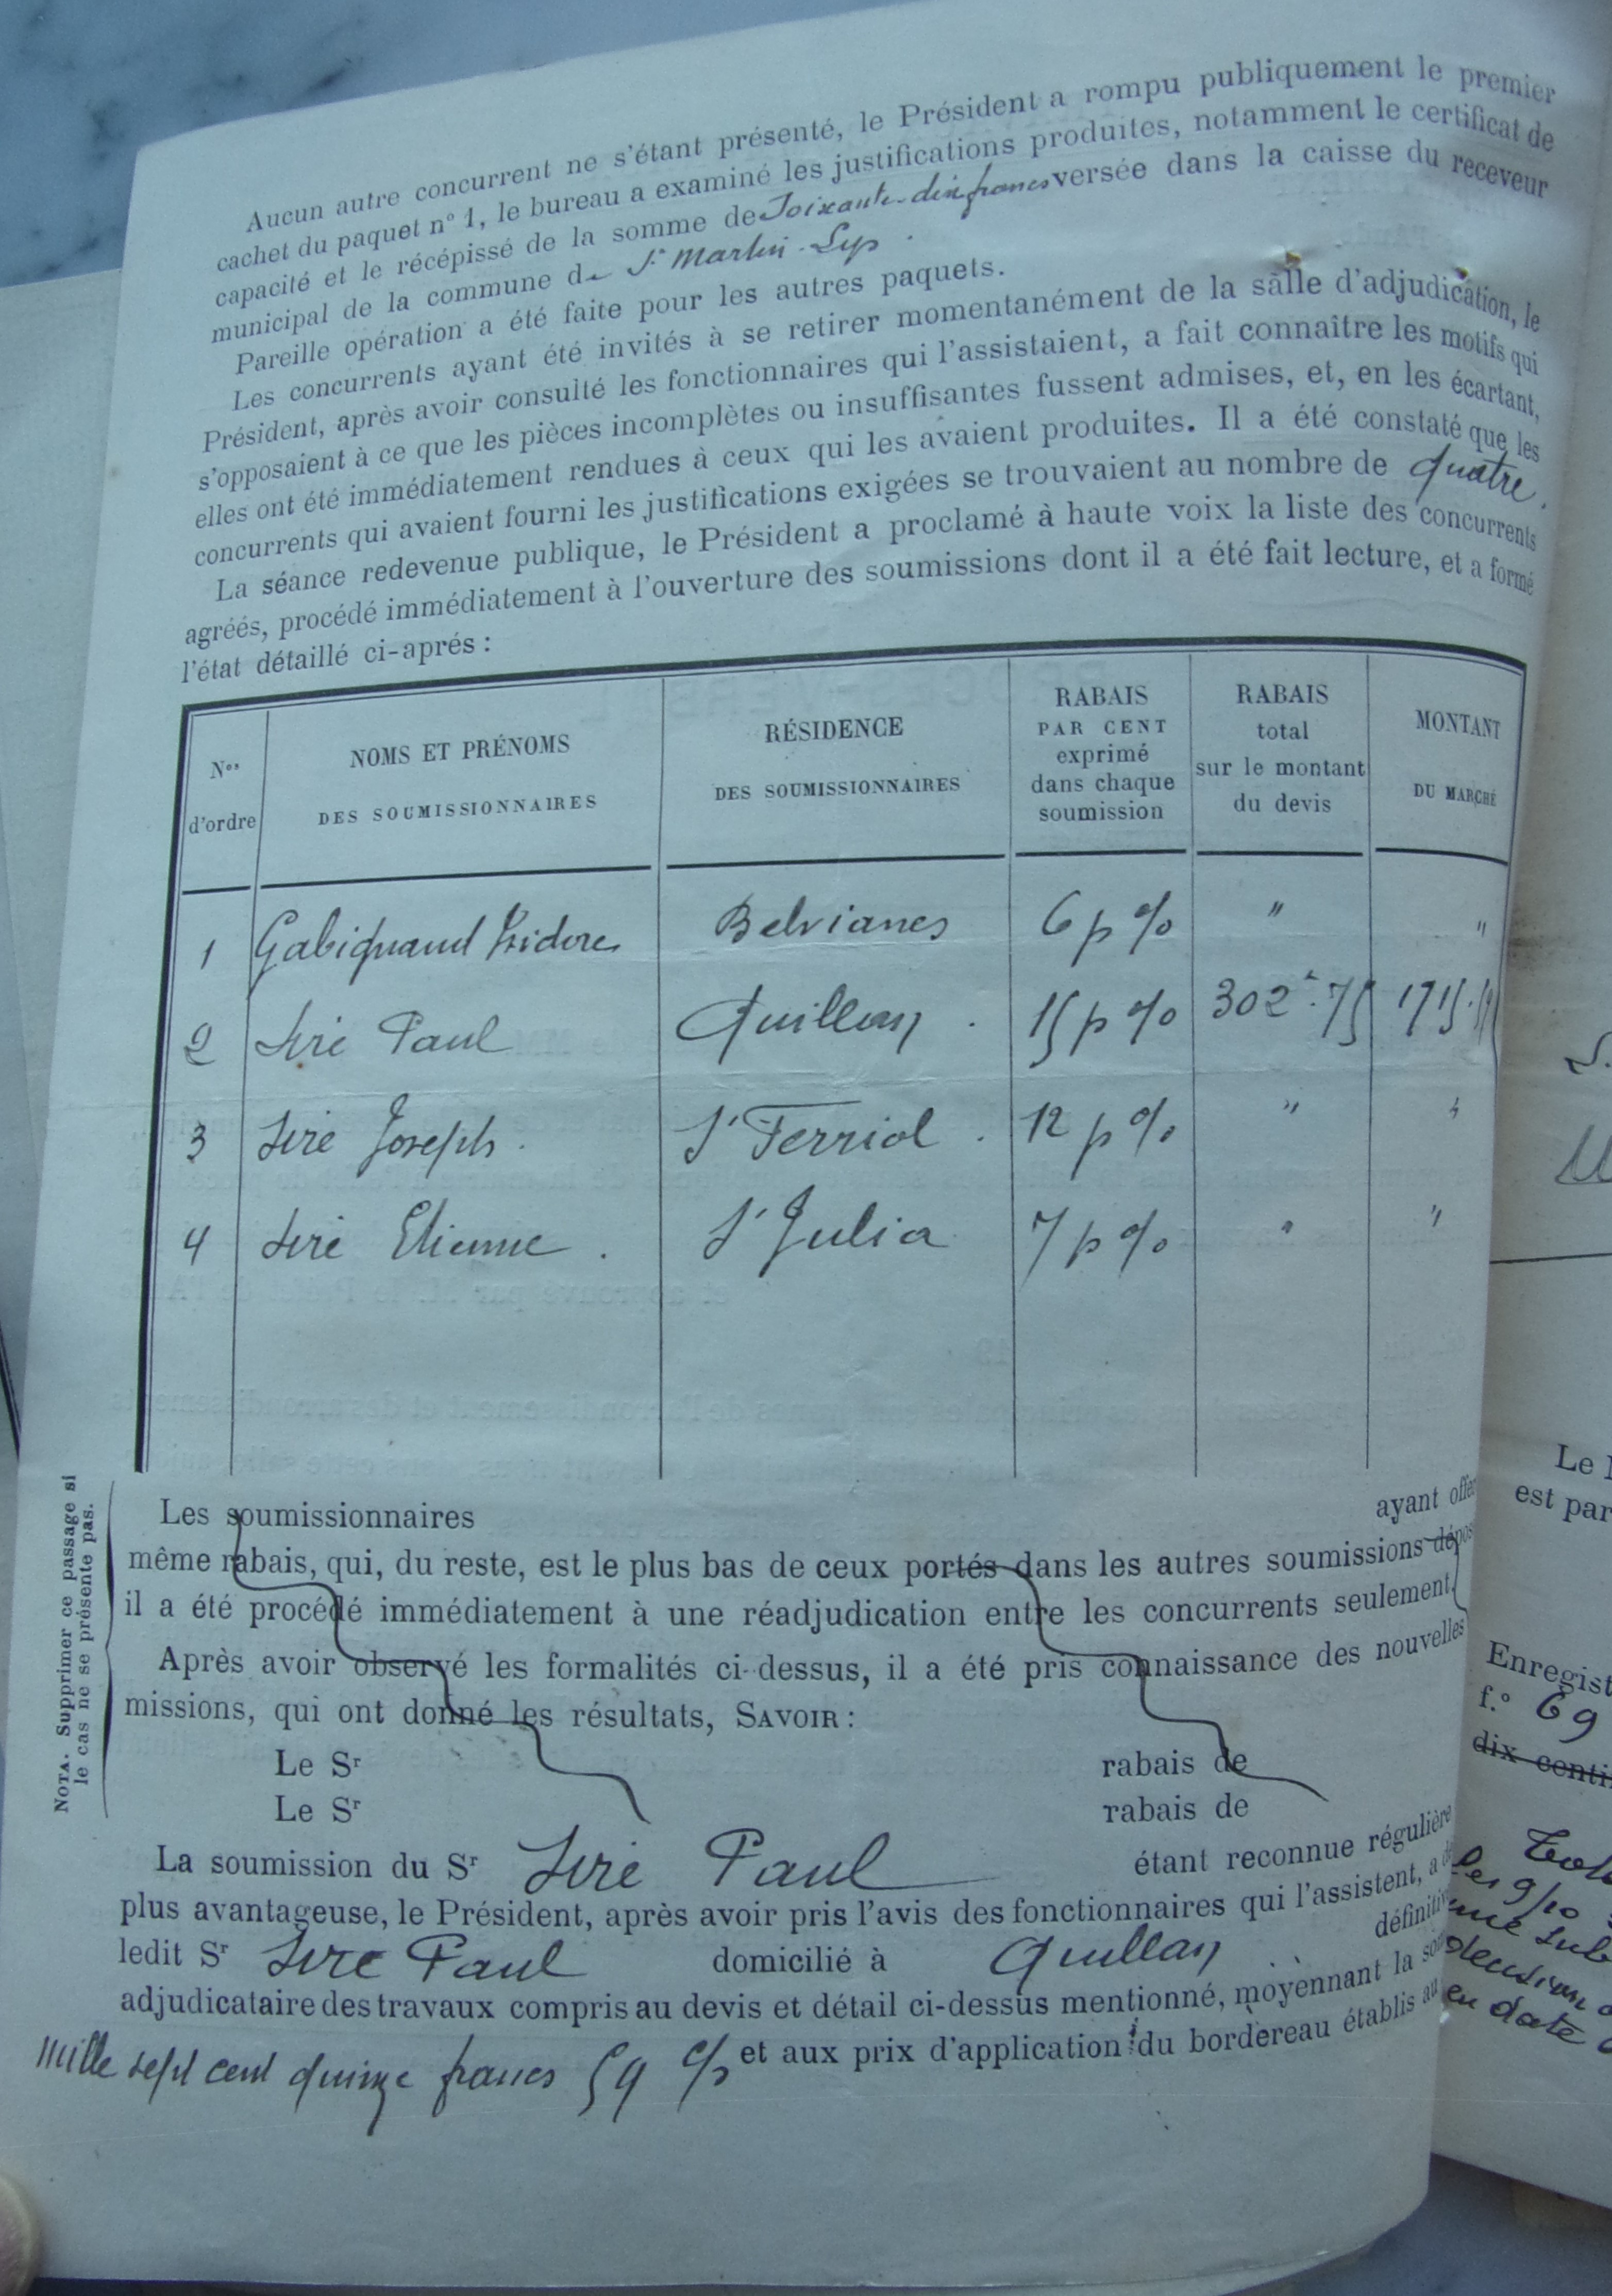 Aucun autre concurrent ne s'étant présenté, le Président a rompu publiquement le premier
cachet du paquet n° 1, le bureau a examiné les justifications produites, notamment le certificat de
capacité et le récépissé de la somme de Soixante-dix francs versée dans la caisse du receveur
municipal de la commune de St Martin-Lys.
Pareille opération a été faite pour les autres paquets.
Les concurrents ayant été invités à se retirer momentanément de la salle d'adjudication, le
Président, après avoir consulté les fonctionnaires qui l'assistaient, a fait connaître les motifs qui
s'opposaient à ce que les pièces incomplètes ou insuffisantes fussent admises, et, en les écartant,
elles ont été immédiatement rendues à ceux qui les avaient produites. Il a été constaté que les
concurrents qui avaient fourni les justifications exigées se trouvaient au nombre de quatre.
La séance redevenue publique, le Président a proclamé à haute voix la liste des concurrents
agréés, procédé immédiatement à l'ouverture des soumissions dont il a été fait lecture, et a formé
l'état détaillé ci-aprés :
Nos d'ordre
NOMS ET PRÉNOMS DES SOUMISSIONNAIRES
RÉSIDENCE DES SOUMISSIONNAIRES
RABAIS PAR CENT exprimé dans chaque soumission
RABAIS total sur le montant du devis
MONTANT DU MARCHÉ
1 Gabignaud Isidore Belvianes 6 p % " "
2 Siré Paul Quillan . 15 p % 302f.75 1715.59
3 Siré Joseph . St Ferriol . 12 p % " "
4 Siré Etienne . St Julia 7 p % " "
NOTA. Supprimer ce passage si
le cas ne se présente pas.
Les soumissionnaires ayant offer
même rabais, qui, du reste, est le plus bas de ceux portés dans les autres soumissions dépos
il a été procédé immédiatement à une réadjudication entre les concurrents seulement.
Après avoir observé les formalités ci-dessus, il a été pris connaissance des nouvelles
missions, qui ont donné les résultats, SAVOIR :
Le Sr rabais de
Le Sr rabais de
La soumission du Sr Siré Paul étant reconnue régulière
plus avantageuse, le Président, après avoir pris l'avis des fonctionnaires qui l'assistent, a
ledit Sr Siré Paul domicilié à Quillan définitiv
adjudicataire des travaux compris au devis et détail ci-dessus mentionné, moyennant la som
mille sept cent quinze francs 59 c/s et aux prix d'application du bordereau établis au
Le
est par
Enregist
f.° 69
dix centi
les 9/10
une sub
decision
en date